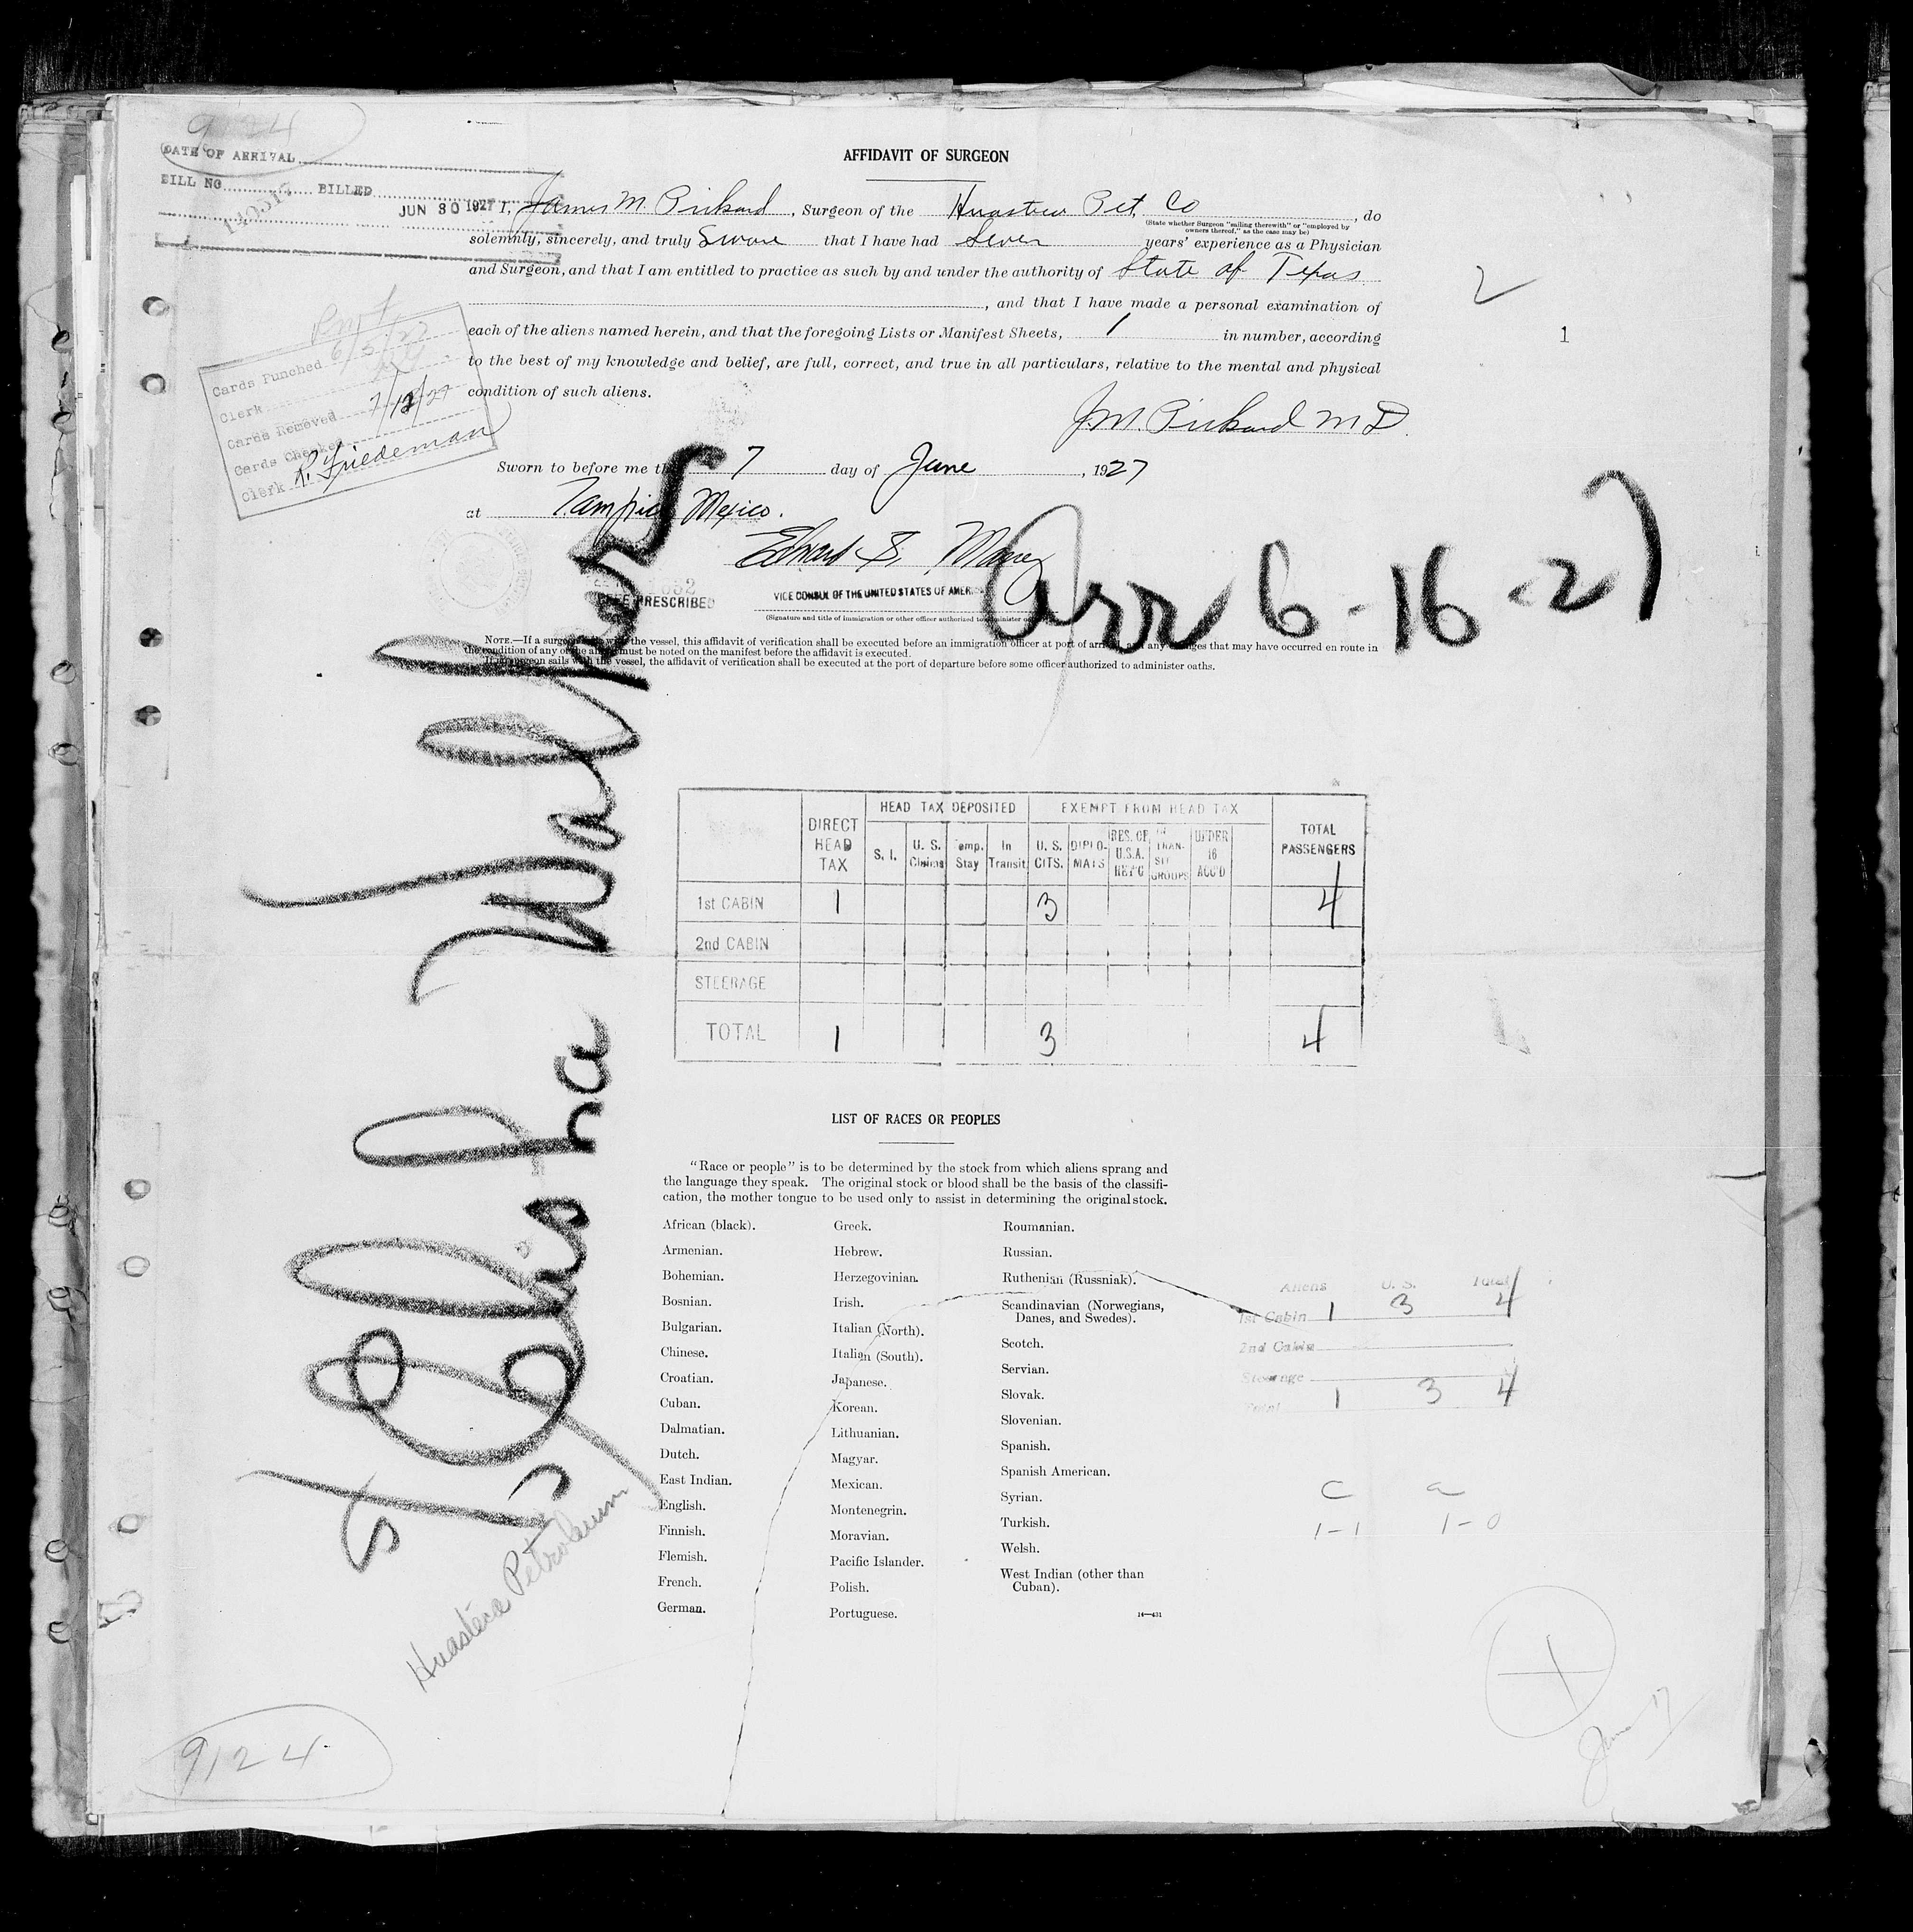 9124
DATE OF ARRIVAL
BILL NO. BILLED
JUN 30 1927
AFFIDAVIT OF SURGEON
I, James M. Pickard, Surgeon of the Huasteca Pet. Co, do
(State whether Surgeon "sailing therewith" or "employed by
owners thereof," as the case may be)
solemnly, sincerely, and truly Swore that I have had Seven years' experience as a Physician
and Surgeon, and that I am entitled to practice as such by and under the authority of State of Texas
, and that I have made a personal examination of
each of the aliens named herein, and that the foregoing Lists or Manifest Sheets, 1 in number, according
to the best of my knowledge and belief, are full, correct, and true in all particulars, relative to the mental and physical
condition of such aliens.
2
1
J. M. Pickard M D.
Cards Punched 6/5/27
Clerk
Cards Removed 7/12/27
Cards Checked
Clerk R. Friedeman
Sworn to before me th 7 day of June, 1927
at Tampico Mexico.
Edward S. Maney
FEE PRESCRIBED
VICE CONSUL OF THE UNITED STATES OF AMERICA
(Signature and title of immigration or other officer authorized to administer
Arr 6-16-27
NOTE.—If a surgeon sails with the vessel, this affidavit of verification shall be executed before an immigration officer at port of arrival, and any changes that may have occurred en route in
the condition of any of the aliens must be noted on the manifest before the affidavit is executed.
If no surgeon sails with the vessel, the affidavit of verification shall be executed at the port of departure before some officer authorized to administer oaths.
S/S Elisha Walker
Huasteca Petroleum
HEAD TAX DEPOSITED EXEMPT FROM HEAD TAX
DIRECT HEAD TAX S. I. U. S. Claims Temp. Stay In Transit U. S. CITS. DIPLO-MATS RES. OF U.S.A. RET'G IN TRAN-SIT GROUPS UNDER 16 ACC'D TOTAL PASSENGERS
1st CABIN 1 3 4
2nd CABIN
STEERAGE
TOTAL 1 3 4
LIST OF RACES OR PEOPLES
"Race or people" is to be determined by the stock from which aliens sprang and
the language they speak. The original stock or blood shall be the basis of the classifi-
cation, the mother tongue to be used only to assist in determining the original stock.
African (black).
Armenian.
Bohemian.
Bosnian.
Bulgarian.
Chinese.
Croatian.
Cuban.
Dalmatian.
Dutch.
East Indian.
English.
Finnish.
Flemish.
French.
German.
Greek.
Hebrew.
Herzegovinian.
Irish.
Italian (North).
Italian (South).
Japanese.
Korean.
Lithuanian.
Magyar.
Mexican.
Montenegrin.
Moravian.
Pacific Islander.
Polish.
Portuguese.
Roumanian.
Russian.
Ruthenian (Russniak).
Scandinavian (Norwegians,
Danes, and Swedes).
Scotch.
Servian.
Slovak.
Slovenian.
Spanish.
Spanish American.
Syrian.
Turkish.
Welsh.
West Indian (other than
Cuban).
14—431
Aliens U. S. Total
1st Cabin 1 3 4
2nd Cabin
Steerage
Total 1 3 4
C a
1-1 1-0
June 17
9124